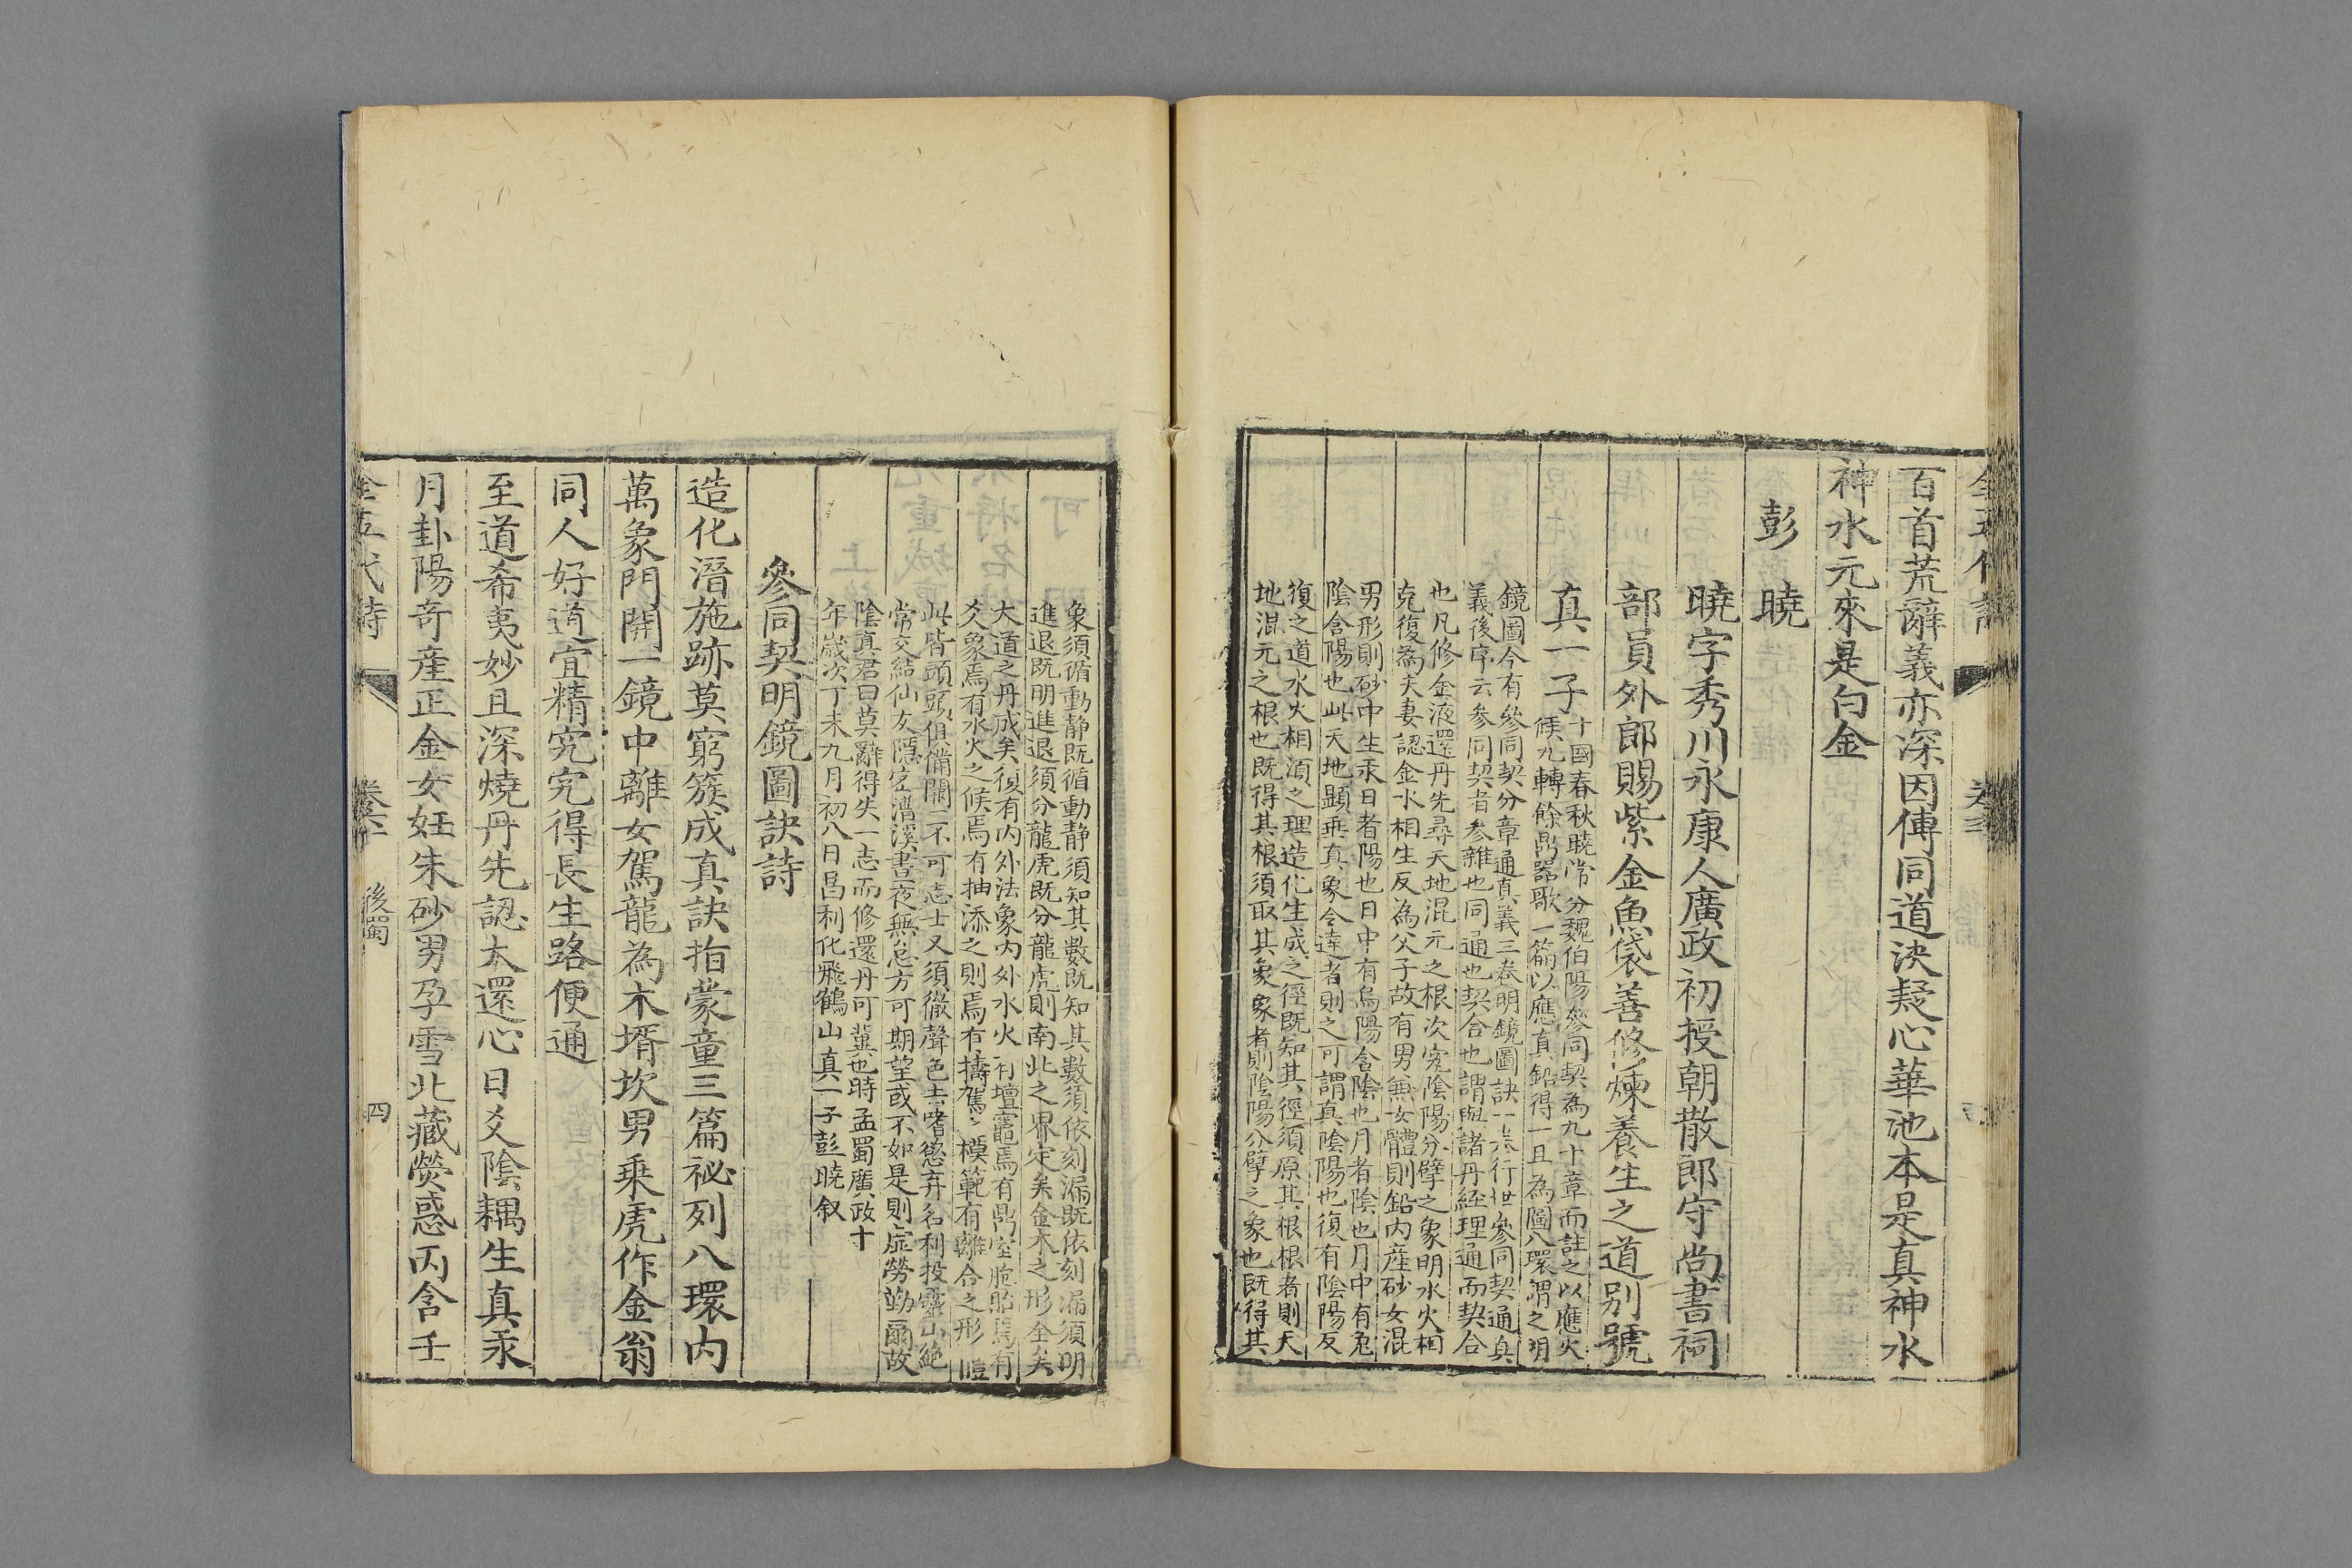 百首荒辭義亦深因傳同道決疑心華池本是真神水
神水元來是白金
彭曉
曉字秀川永康人廣政初授朝散郎守尚書祠
部員外郎賜紫金魚袋善修煉養生之道別號
真一子
十國春秋曉常分魏伯陽參同契為九十章而註之以應火
候九轉餘鼎器歌一篇以應真鉛得一且為圖八環謂之明
鏡圖今有參同契分章通真義三卷明鏡圖訣一卷行世參同契通真
義後序云參同契者參雜也同通也契合也謂與諸丹經理通而契合
也凡修金液還丹先尋天地混元之根次究陰陽分擘之象明水火相
克復為夫妻認金水相生反為父子故有男無女體則鉛內產砂女混
男形則砂中生汞日者陽也日中有烏陽含陰也月者陰也月中有兔
陰含陽也此天地顯垂真象令達者則之可謂真陰陽也復有陰陽反
復之道水火相須之理造化生成之徑既知其徑須原其根根者則天
地混元之根也既得其根須取其象象者則陰陽分擘之象也既得其
象須循動靜既循動靜須知其數既知其數須依刻漏既依刻漏須明
進退既明進退須分龍虎既分龍虎則南北之界定矣金木之形全矣
大道之丹成矣復有內外法象內外水火有壇竈焉有鼎室胞胎焉有
爻象焉有水火之候焉有抽添之則焉有擣駕模範有離合之形體
此皆頭頭俱備闕一不可志士又須徹聲色去嗜慾弃名利投靈山絕
常交結仙友隱密潛溪晝夜無怠方可期望或不如是則症勞勤爾故
陰真君曰莫辭得失一志而修還丹可冀也時孟蜀廣政十
年歲次丁未九月初八日昌利化飛鶴山真一子彭曉敘
參同契明鏡圖訣詩
造化潛施跡莫窮簇成真訣指蒙童三篇祕列八環內
萬象門開一鏡中離女駕龍為木壻坎男乘虎作金翁
同人好道宜精究究得長生路便通
至道希夷妙且深燒丹先認太還心日爻陰耦生真汞
月卦陽奇產正金女妊朱砂男孕雪北藏熒惑丙含壬
全五代詩
後蜀
四